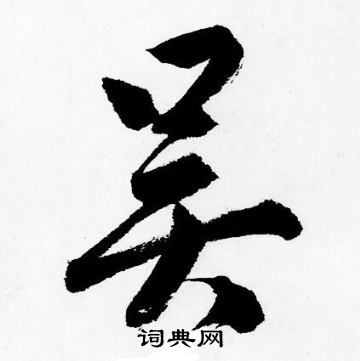 吴
词典网